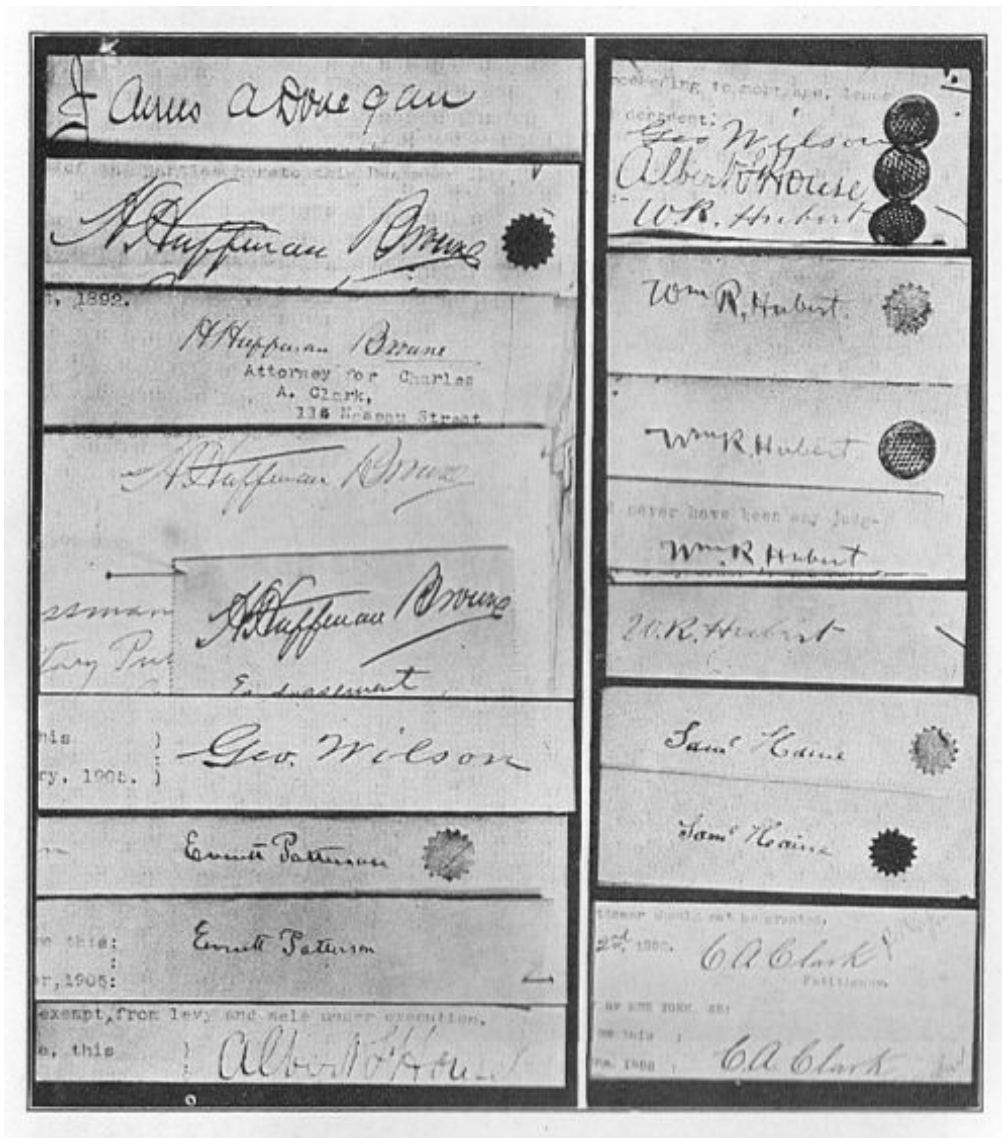 James A Donegan
of the parties hereto this December
H. Huffman Browne
, 1892.
H Huffman Browne
Attorney for Charles
A. Clark,
116 Nassau Street
H. Huffman Browne
ssman
tary Pu
H. Huffman Browne
Endorsement
his )
ry, 1905. )
Geo. Wilson
Everett Patterson
this:
:
er, 1905:
Everett Patterson
exempt from levy and sale under execution.
e, this )
Albert L House
to mortgage, lease
decedent.
Geo Wilson
Albert L House
W.R. Hubert
Wm R. Hubert.
Wm R. Hubert.
never have been any judg-
Wm R. Hubert
W.R. Hubert
Saml Haine
Saml Haine
should not be granted.
2nd,
C A Clark
Petitioner.
OF NEW YORK. SS:
me this :
C A Clark